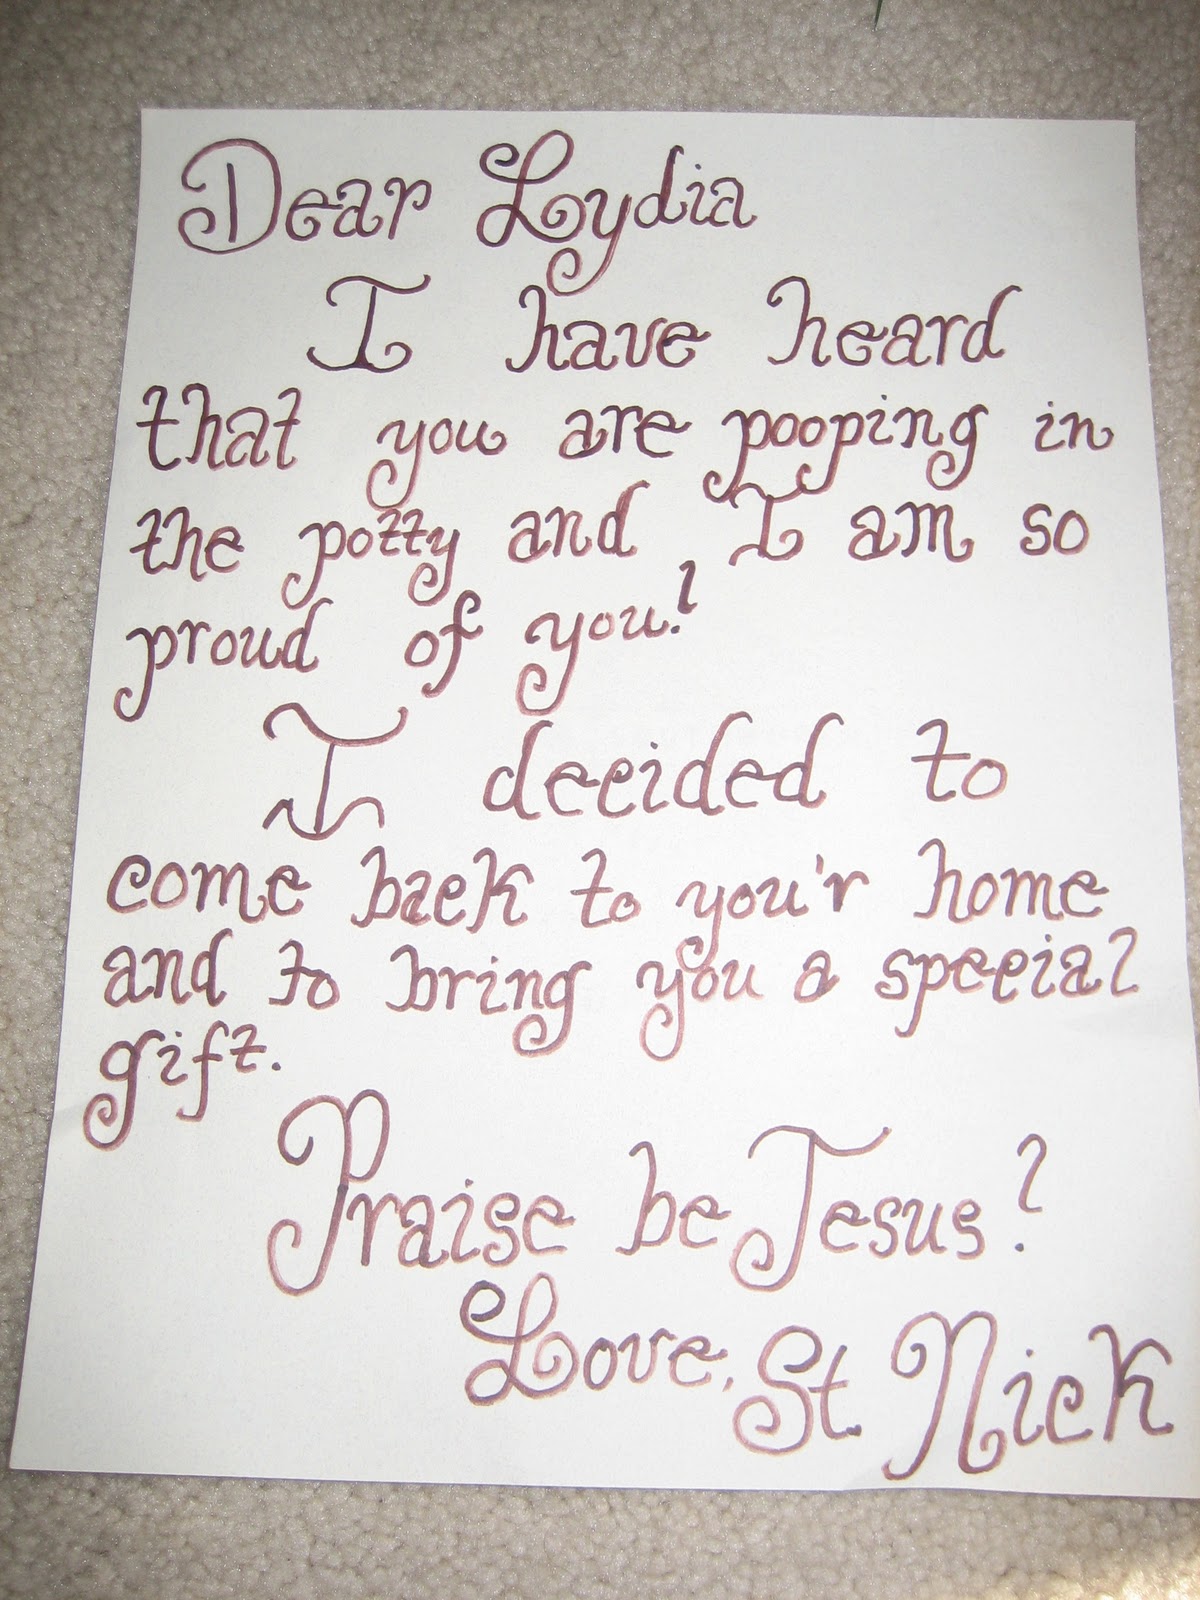 Dear Lydia
I have heard
that you are pooping in
the potty and I am so
proud of you!
I decided to
come back to you'r home
and to bring you a special
gift.
Praise be Jesus!
Love, St. Nick